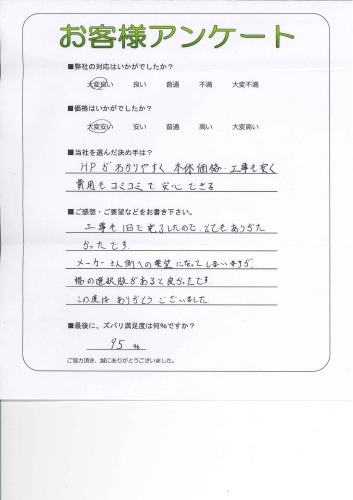 お客様アンケート
■弊社の対応はいかがでしたか？
大変良い 良い 普通 不満 大変不満
■価格はいかがでしたか？
大変安い 安い 普通 高い 大変高い
■当社を選んだ決め手は？
HPがわかりやすく 本体価格・工事も安く
費用もコミコミで安心できる
■ご感想・ご要望などをお書き下さい。
工事も1日で完了したので、とてもありがた
かったです。
メーカーさん側への要望になってしまいますが、
幅の選択肢があると良かったです。
この度は ありがとうございました。
■最後に、ズバリ満足度は何%ですか？
95 %
ご協力頂き、誠にありがとうございました。